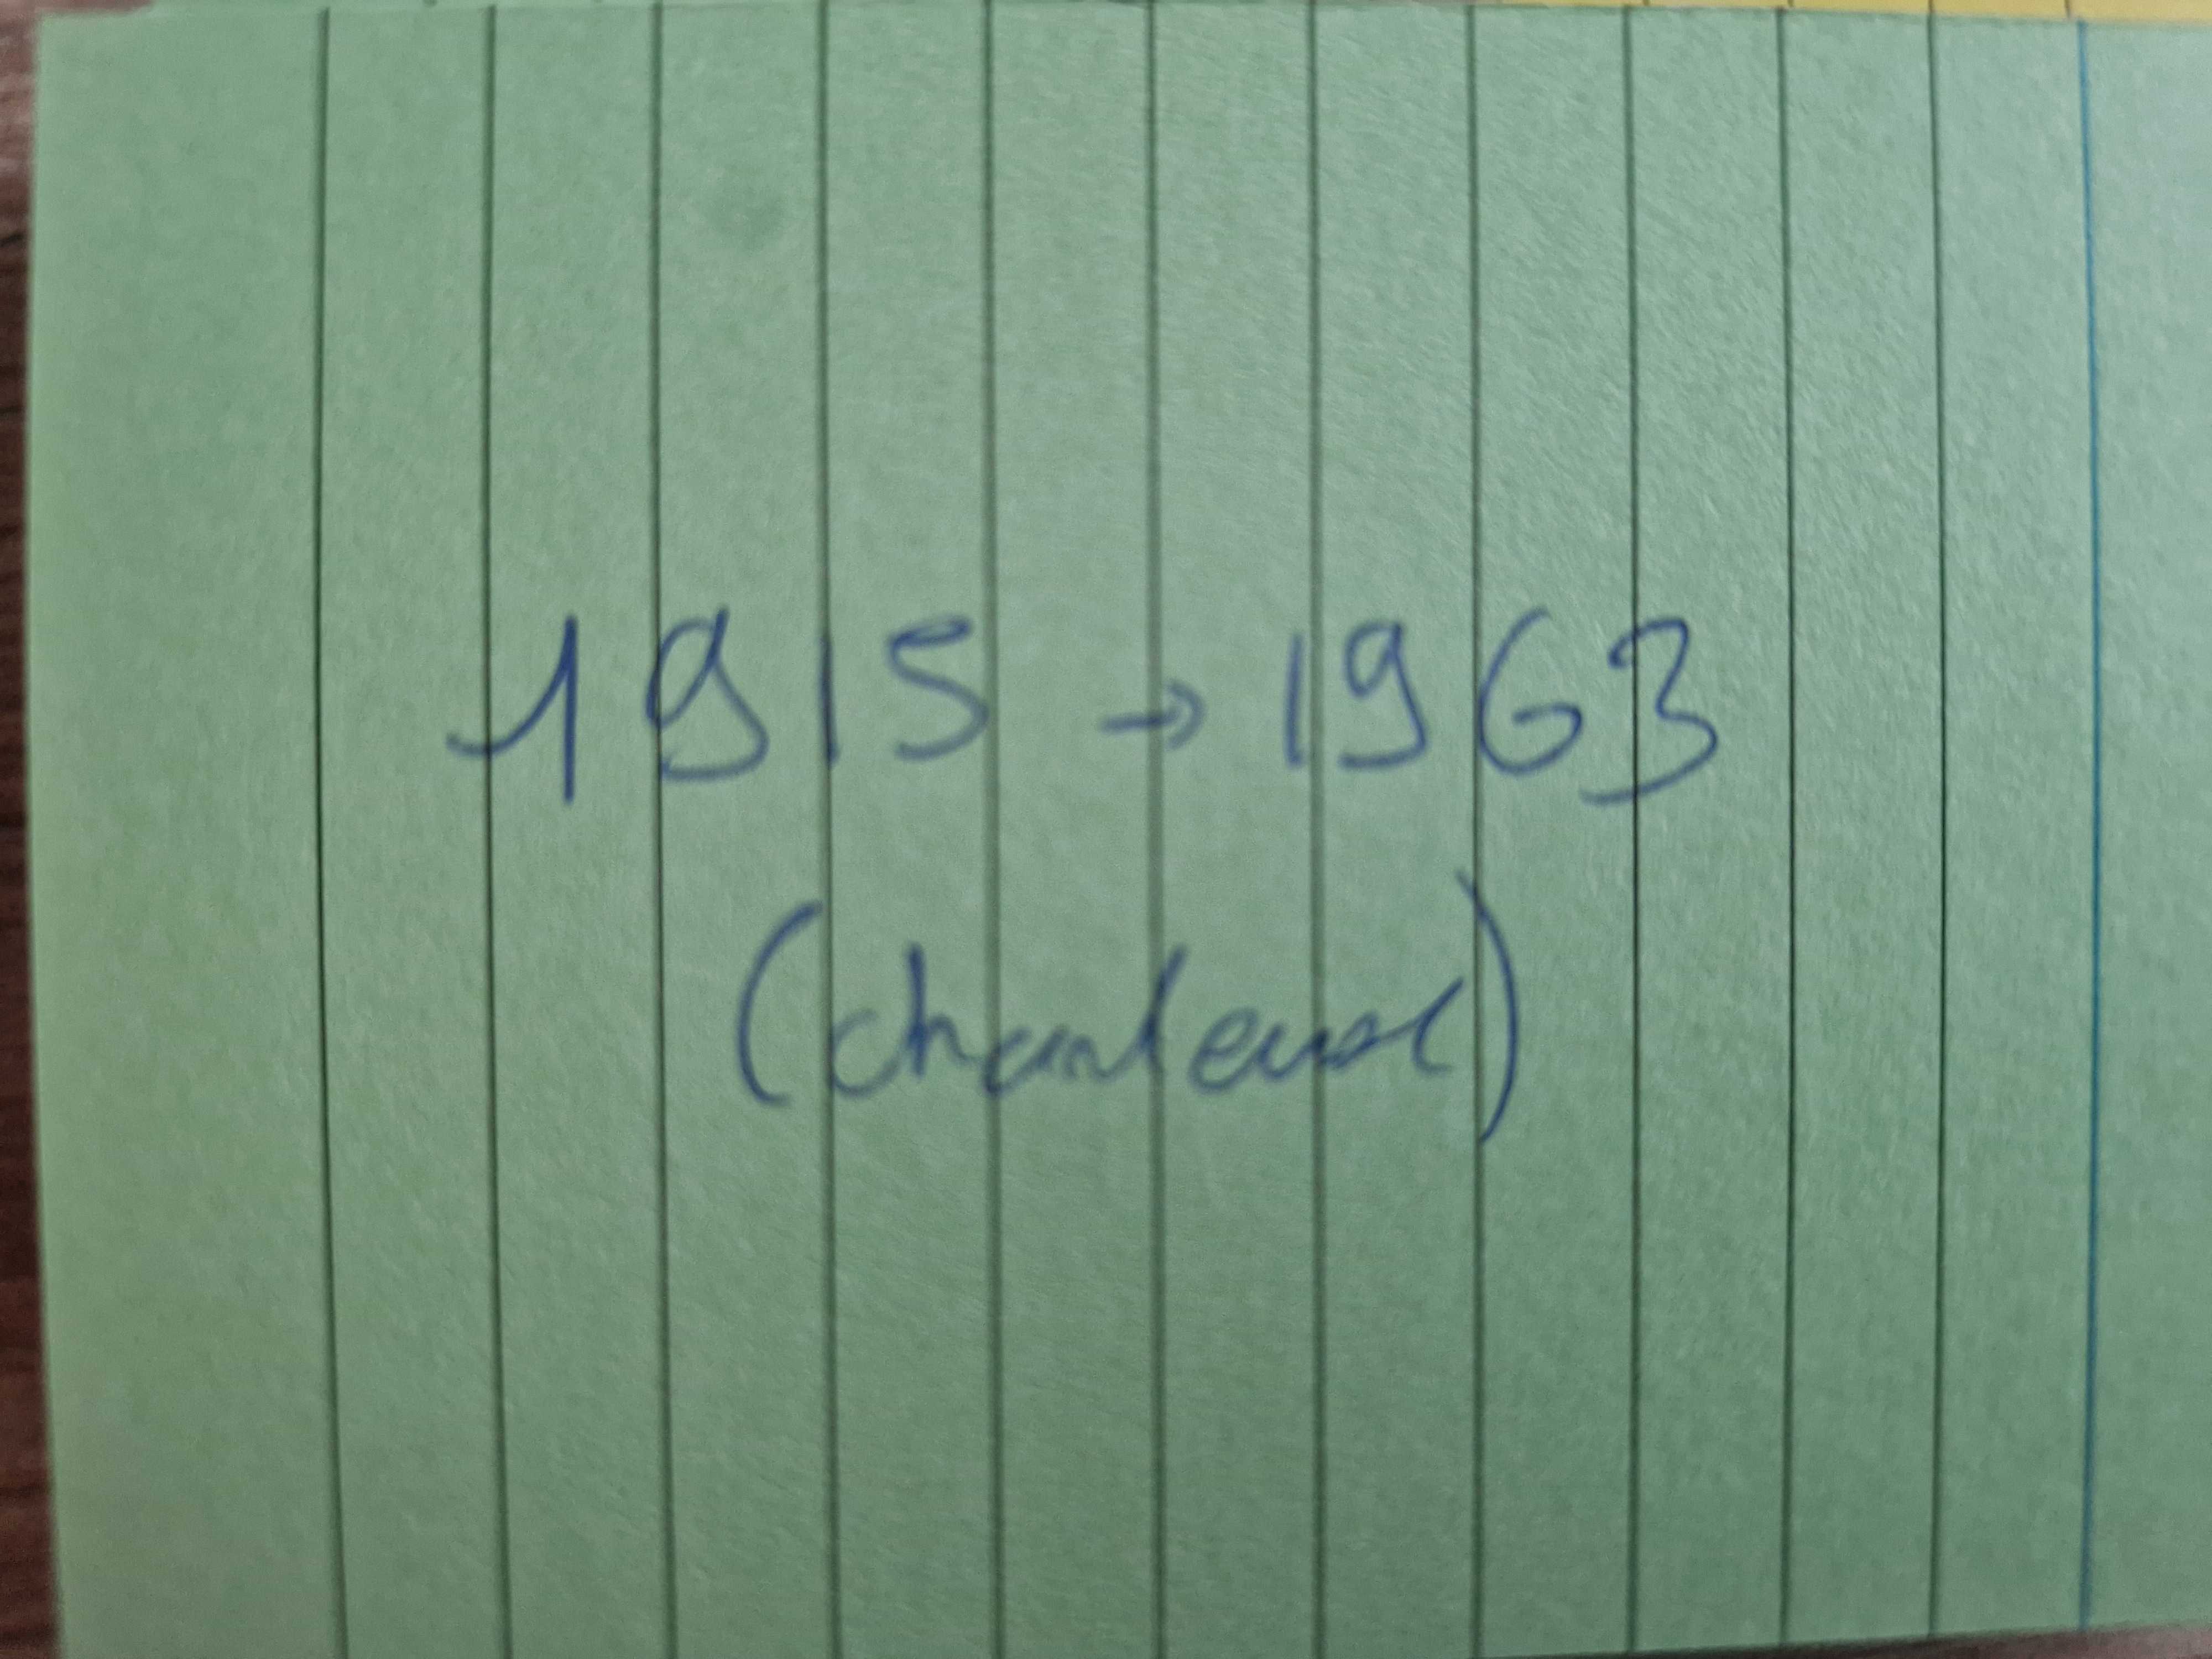 1915 → 1963
(chanteuse)